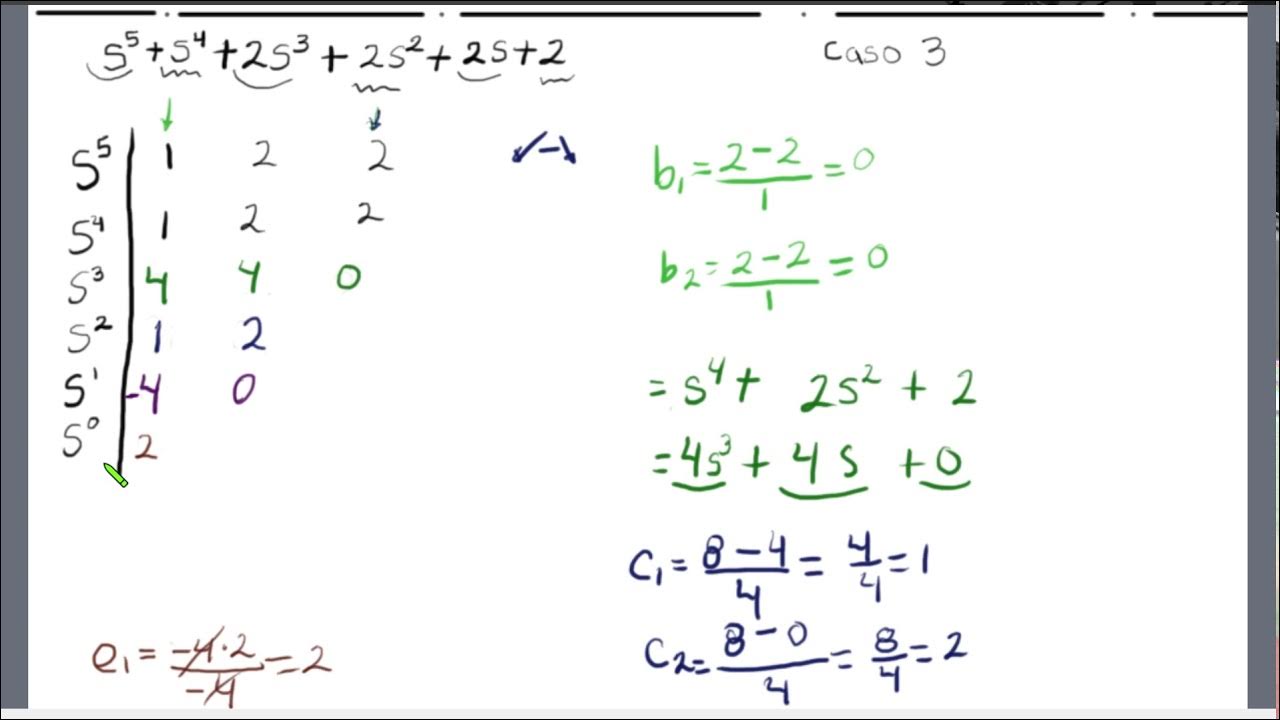 s⁵ + s⁴ + 2s³ + 2s² + 2s + 2
Caso 3
s⁵ | 1 2 2
s⁴ | 1 2 2
s³ | 4 4 0
s² | 1 2
s¹ | -4 0
s⁰ | 2
b₁ = (2 - 2)/1 = 0
b₂ = (2 - 2)/1 = 0
= s⁴ + 2s² + 2
= 4s³ + 4s + 0
c₁ = (8 - 4)/4 = 4/4 = 1
c₂ = (8 - 0)/4 = 8/4 = 2
e₁ = (-4·2)/(-4) = 2